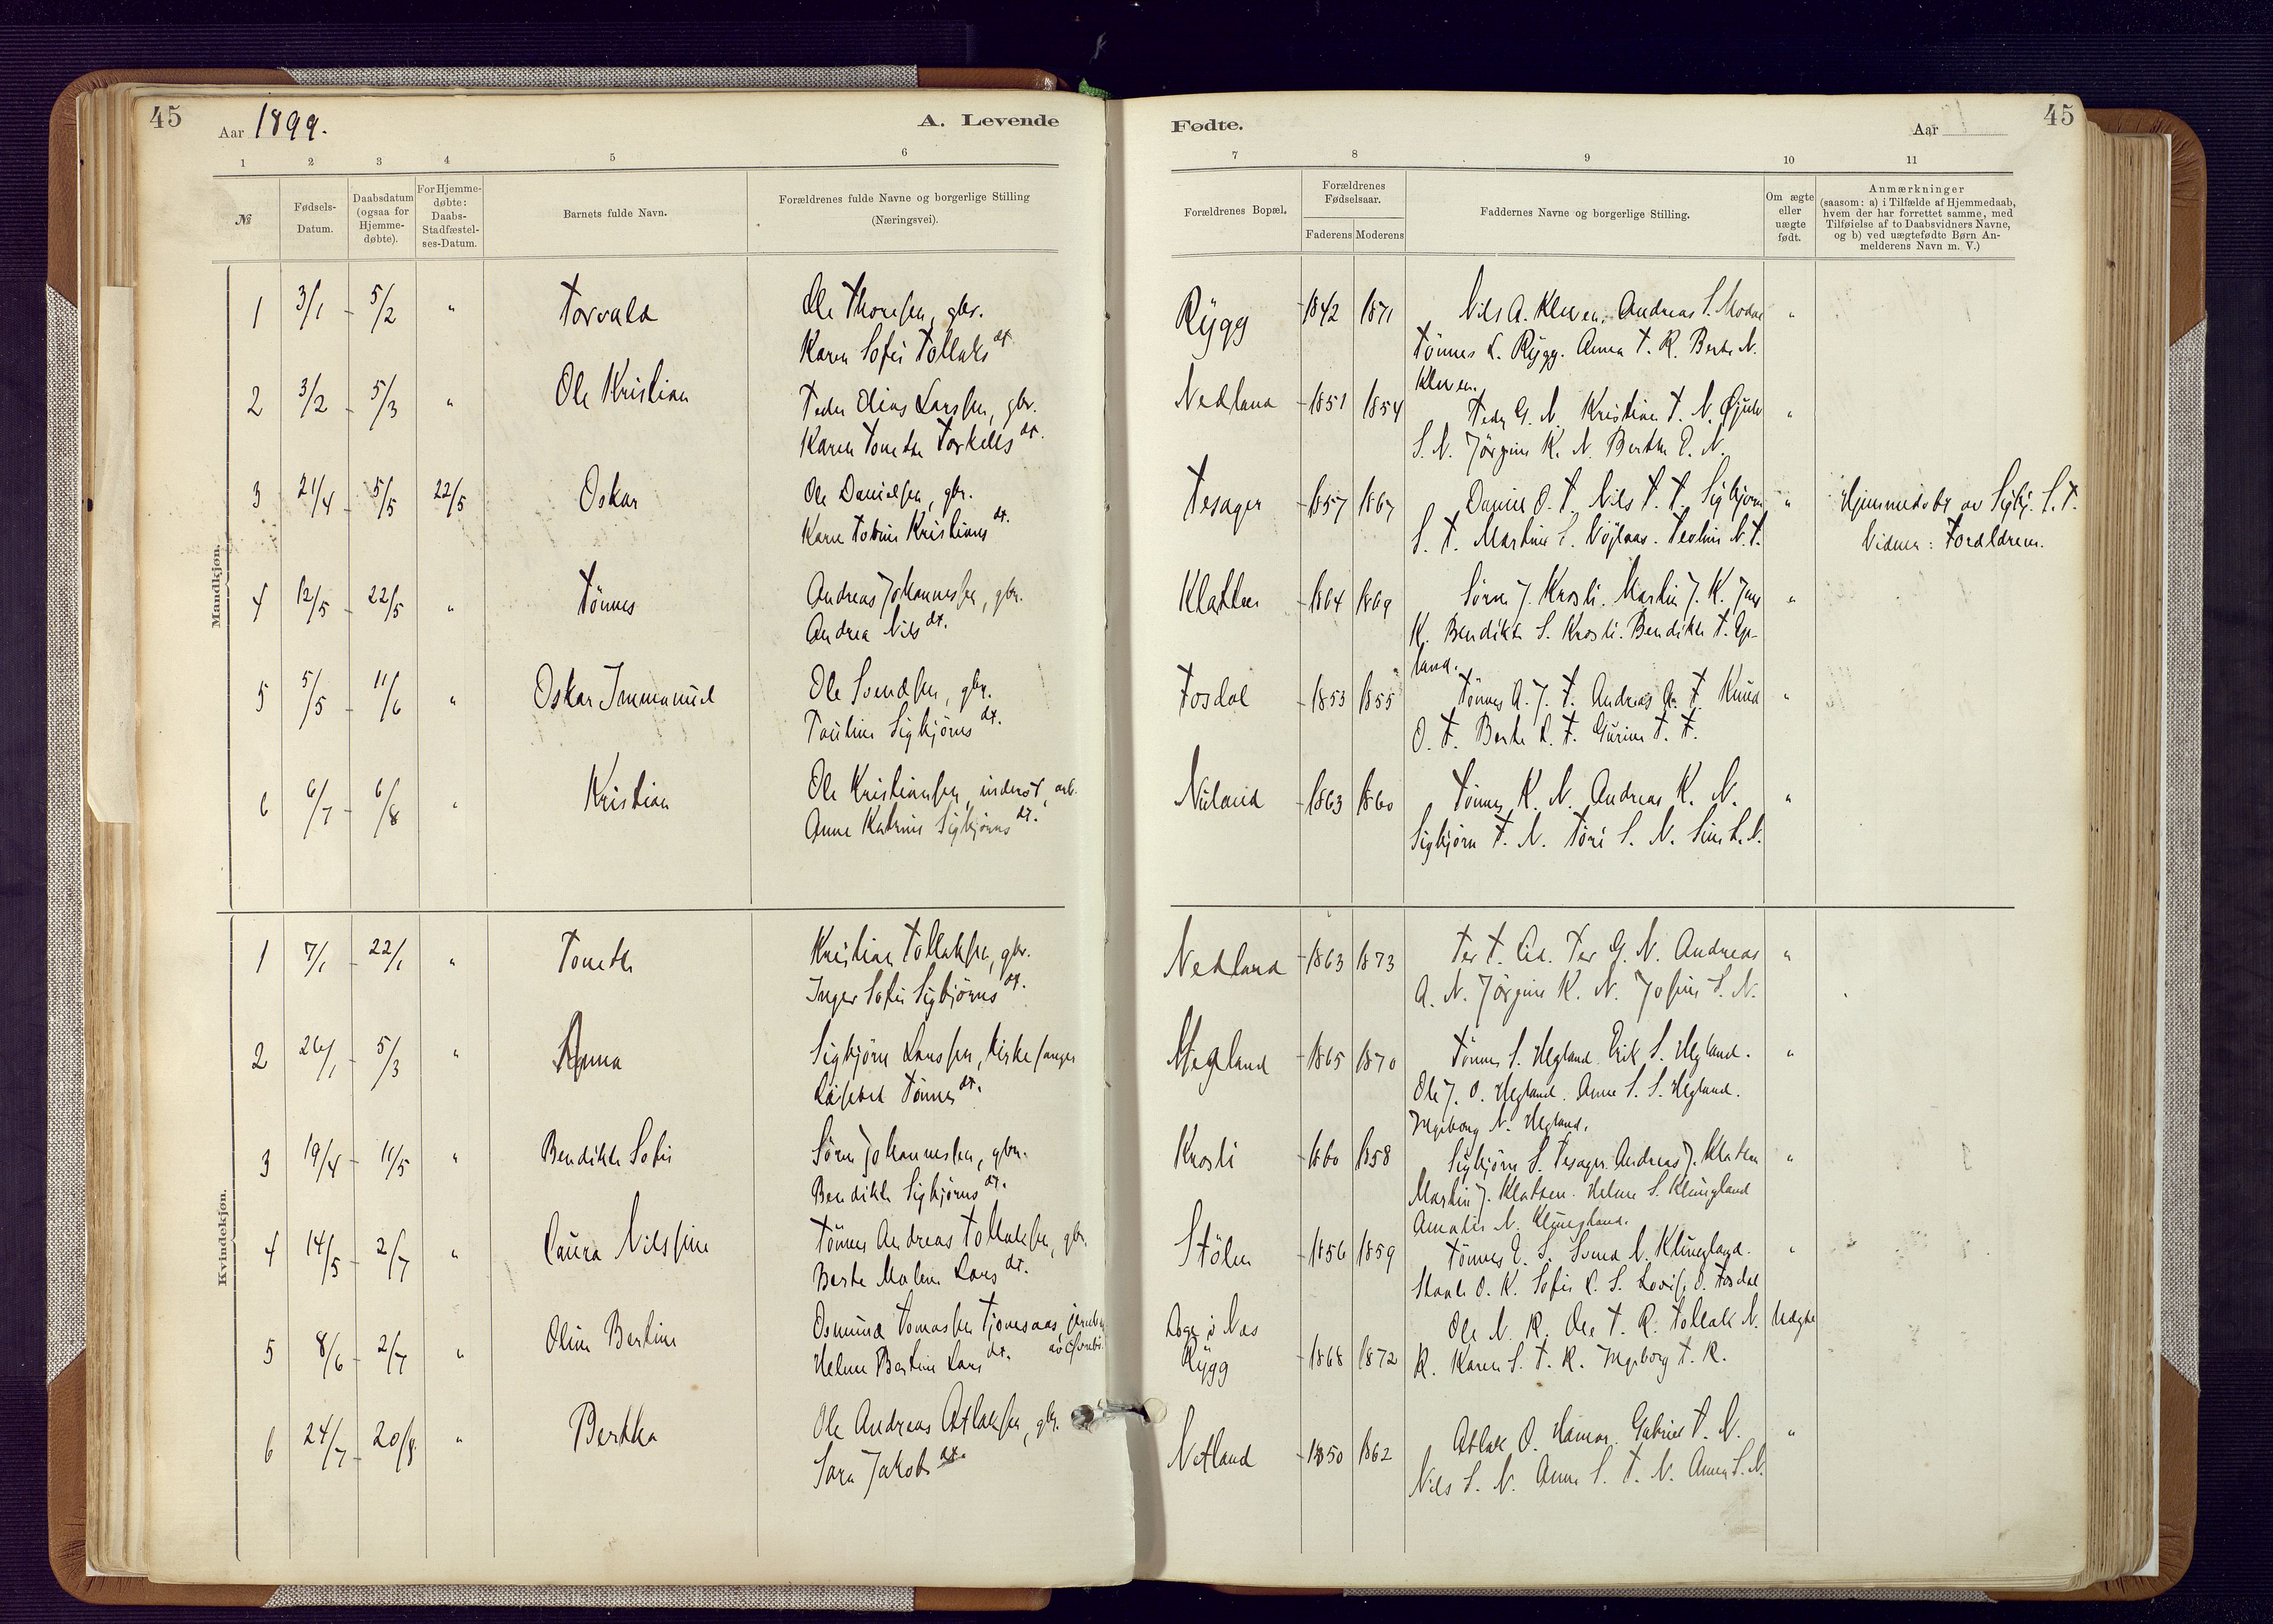 45
Aar 1899.
A. Levende
1 2 3 4 5 6
№
Fødsels-Datum.
Daabsdatum (ogsaa for Hjemme-døbte).
For Hjemme-døbte: Daabs-Stadfæstel-ses-Datum.
Barnets fulde Navn.
Forældrenes fulde Navne og borgerlige Stilling
(Næringsvei).
Mandkjøn.
1 3/1 - 5/2 " Torvald Ole Thoresen, gbr.
Karen Sofie Tollaks dt.
2 3/2 - 5/3 " Ole Kristian Peder Elias Larssen, gbr.
Karen Tonette Torkells dt.
3 21/4 - 5/5 22/5 Oskar Ole Danielsen, gbr.
Karen Kristians dt.
4 12/5 - 22/5 " Tönnes Andreas Johannessen, gbr.
Andrea Nils dt.
5 5/5 - 11/6 " Oskar Immanuel Ole Svendsen, gbr.
Pauline Sigbjörns dt.
6 6/7 - 6/8 " Kristian Ole Kristiansen, inderst, arb.
Anne Katrine Sigbjörns dt.
Kvindekjøn.
1 7/1 - 22/1 " Tonette Kristian Tollaksen, gbr.
Inger Sofie Sigbjörns dt.
2 26/1 - 5/3 " Anna Sigbjörn Larssen, kirkesanger
Lisebet Tönnes dt.
3 19/4 - 11/5 " Bendikte Sofie Sörn Johannessen, gbr.
Bendikte Sigbjörns dt.
4 14/5 - 2/7 " Laura Nilssine Tönnes Andreas Tollaksen, gbr.
Berte Malene Lars dt.
5 8/6 - 2/7 " Oline Bertine Osmund Tomassen Tjomsaas,
Helene Bertine Lars dt.
6 24/7 - 20/8 " Bertha Ole Andreas Atlaksen, gbr.
Sara Jakobs dt.
Fødte.
Aar
45
7 8 9 10 11
Forældrenes Bopæl.
Forældrenes Fødselsaar.
Faderens Moderens
Faddernes Navne og borgerlige Stilling.
Om ægte eller uægte født.
Anmærkninger
(saasom: a) i Tilfælde af Hjemmedaab,
hvem der har forrettet samme, med
Tilføielse af to Daabsvidners Navne,
og b) ved uægtefødte Børn An-
melderens Navn m. V.)
Rygg 1842 1871 Nils A. Kleven. Andreas S. "
Tönnes L. Rygg. Anna T. R. Berte N.
Kleven.
Nedland 1851 1854 Peder G. N. Kristian T. N. "
S. N. Jörgine K. N. Berthe E. N.
Tesager 1857 1867 Daniel O. T. Nils T. T. Sigbjörn " Hjemmedöbt av Sigbj. S. T.
S. T. Martine S. Teoline N. T. Vidner: Foreldrene.
Klatten 1864 1869 Sörn J. Krosli. Martin J. K. Jens "
K. Bendikte S. Krosli. Bendikte T. Ege-
land.
Fosdal 1853 1855 Tönnes A. J. F. Andreas A. F. Knud "
O. F. Berte L. F. Gurine T. F.
Nuland 1863 1860 Tönnes K. N. Andreas K. N. "
Sigbjörn T. N. Tori S. N. Sine L. N.
Nedland 1863 1873 Per G. N. Andreas "
A. N. Jörgine K. N. Josine S. N.
Hegland 1865 1870 Tönnes S. Hegland. Erik S. Hegland. "
Ole J. O. Hegland. Anne S. S. Hegland.
Ingeborg N. Hegland.
Krosli 1860 1858 Sigbjörn S. Tesager. Andreas J. Klatten "
Martin J. Klatten. Helene S. Klungland
Amalie N. Klungland.
Stölen 1856 1859 Tönnes E. S. Svend N. Klungland. "
O. K. Sofie L. S. Lovise O. Fosdal
Ole N. R. Ole T. R. Tollak N. Uægte
Rygg 1868 1872 R. Karen S. T. R. Ingeborg T. R.
Netland 1850 1862 Atlak O. Hamar. Gabriel T. N. "
Nils S. N. Anne S. T. N. Anna S. N.